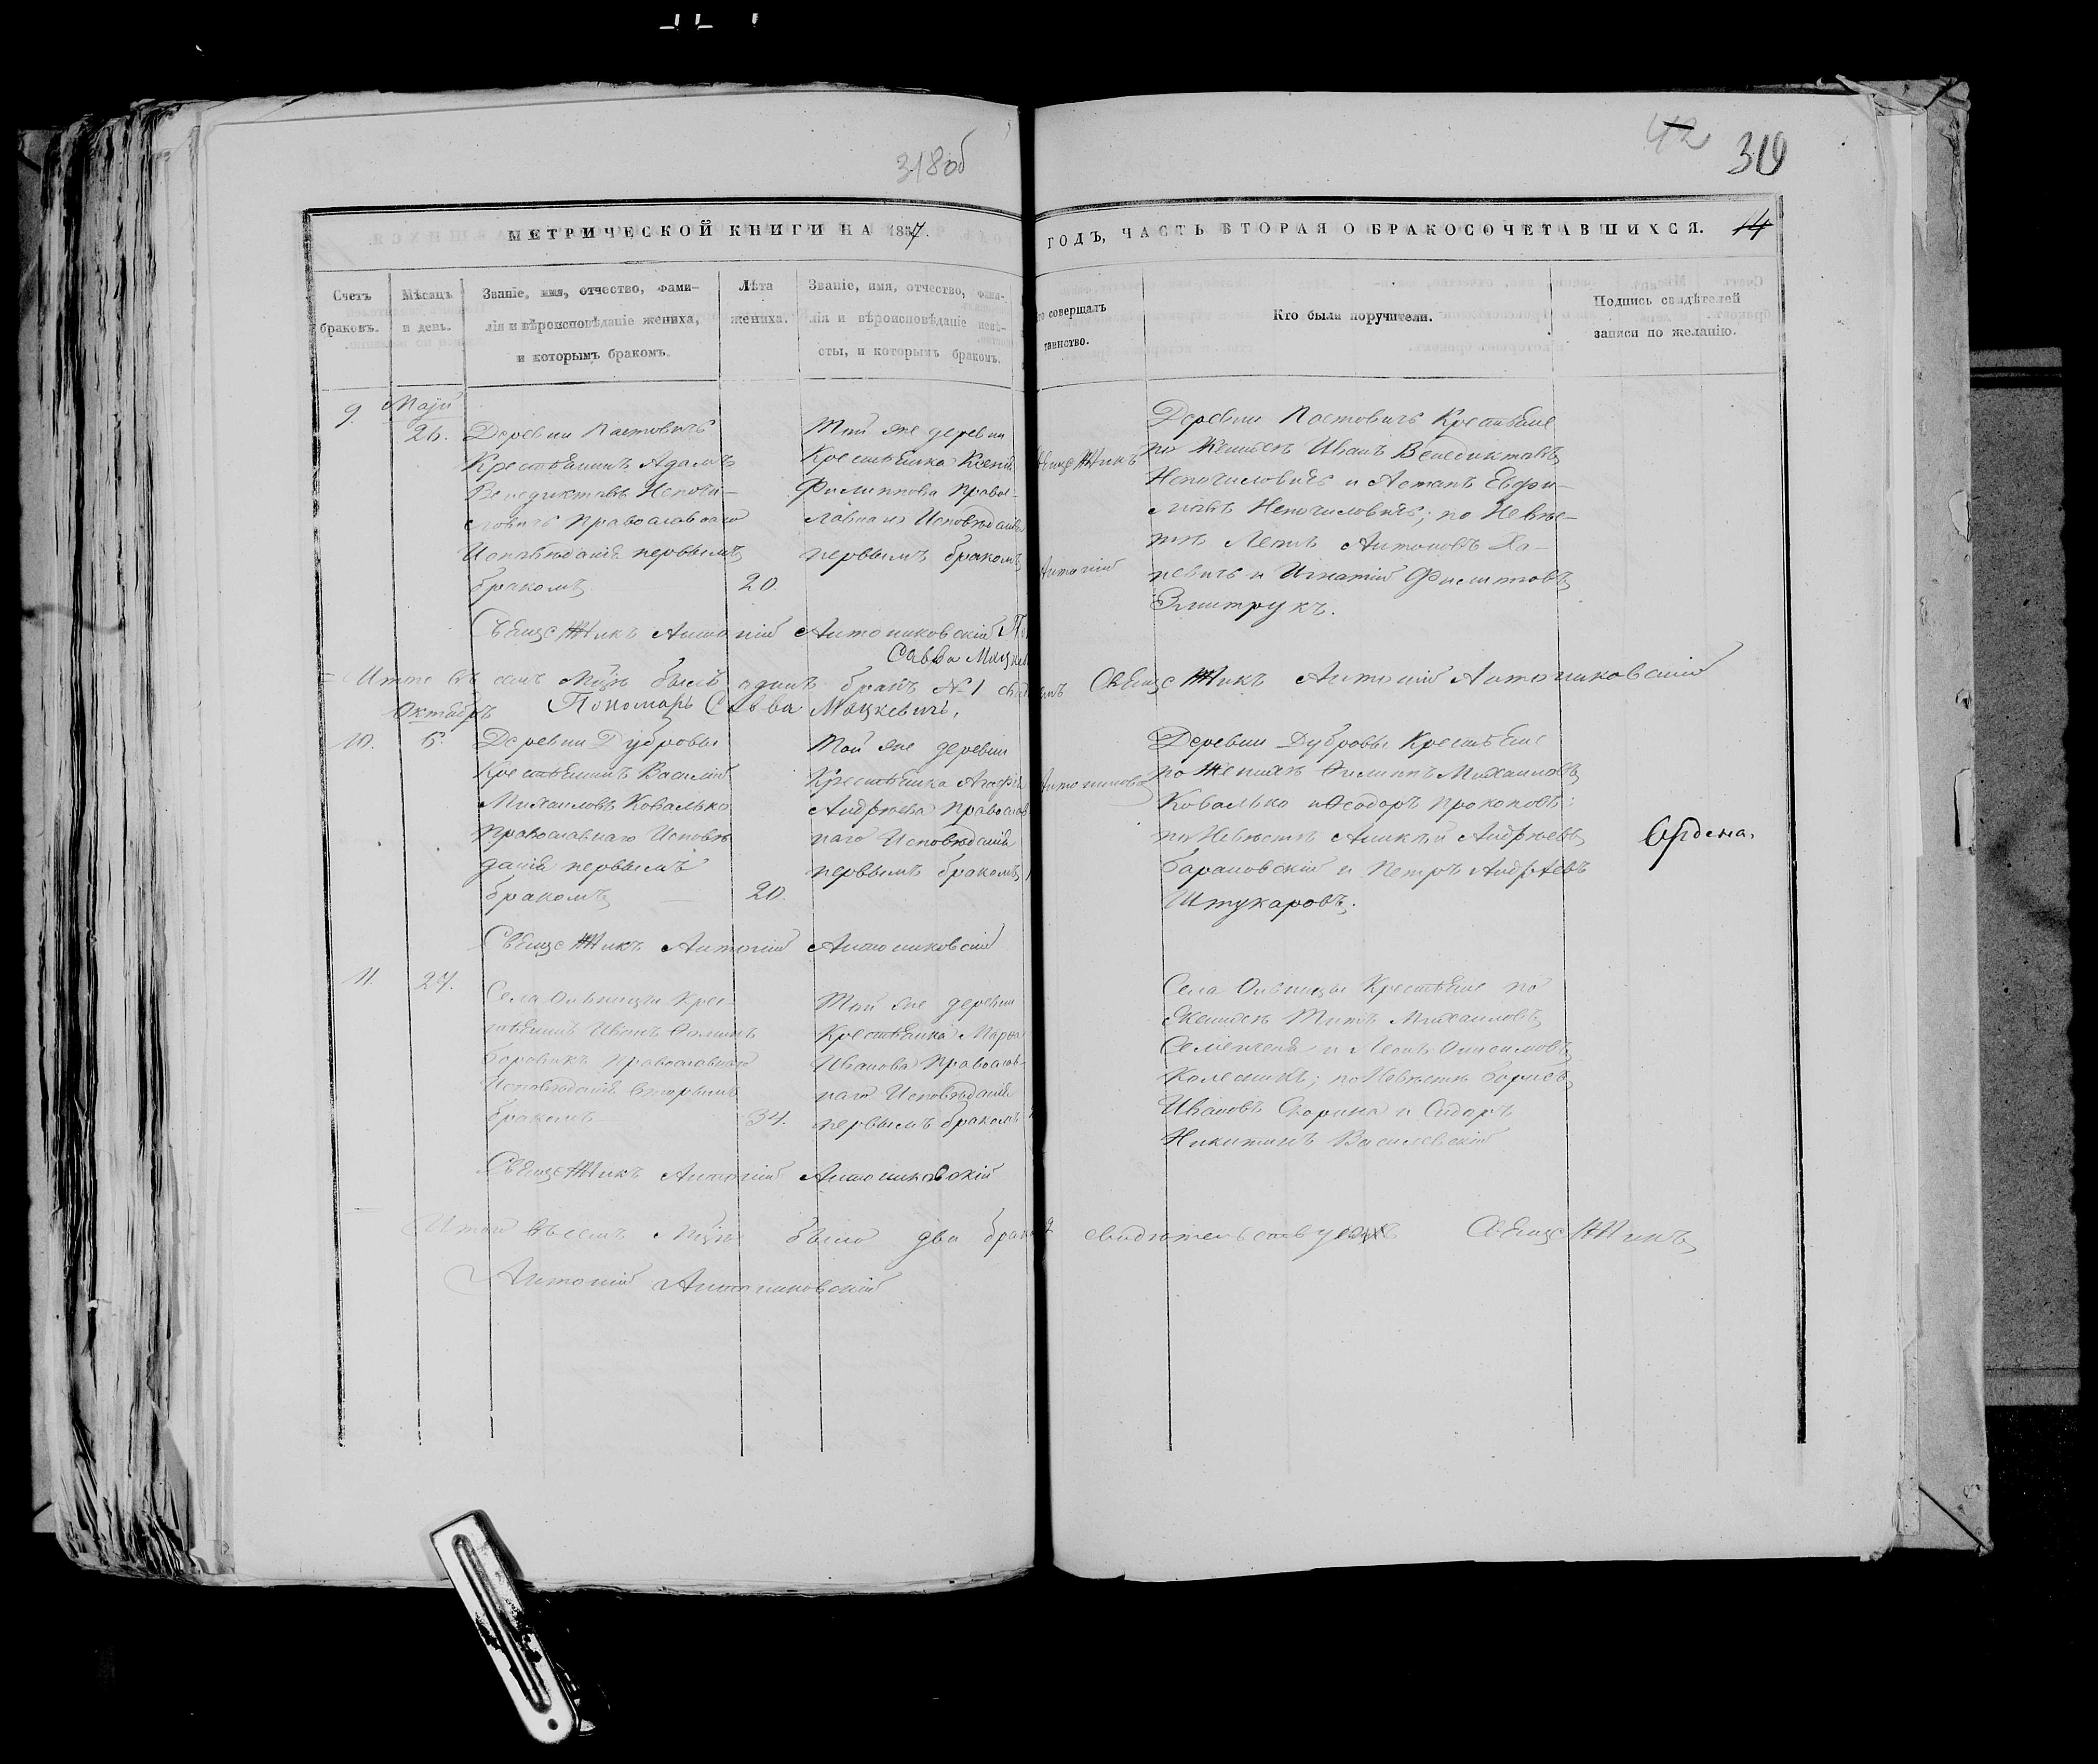 318об
42 319
МЕТРИЧЕСКОЙ КНИГИ НА 1857.
ГОДЪ, ЧАСТЬ ВТОРАЯ О БРАКОСОЧЕТАВШИХСЯ. 14
Счетъ
браковъ.
Мѣсяцъ
и день.
Званіе, имя, отчество, фами-
лія и вѣроисповѣданіе жениха,
и которымъ бракомъ.
Лѣта
жениха.
Званіе, имя, отчество, фами-
лія и вѣроисповѣданіе невѣ-
сты, и которымъ бракомъ.
совершалъ
таинство.
Кто были поручители.
Подпись свидѣтелей
записи по желанію.
9.
Маій
26.
Деревни
Крестьянинъ Адамъ
Венедиктовъ Непочи-
ловичъ Православнаго
Исповѣданія первымъ
бракомъ
20.
Той же деревни
Крестьянка Ксенія
Филиппова Правос-
лавнаго Исповѣданія
первымъ бракомъ
Антоній
Деревни Крестьяне
по Женихѣ Иванъ Венедиктовъ
Непочиловичъ и Астапъ Евфи-
мовъ Непочиловичъ; по Невѣс-
тѣ Антоновъ
и Игнатій Филиповъ
Змитрукъ.
Священникъ Антоній Антониковскій
Савва Мацкев
Итого въ семъ Мцѣ былъ одинъ бракъ №1
Священникъ Антоній Антониковскій
Пономарь Савва Мацкевичъ.
Октябрь
10.
6.
Деревни Дубровы
Крестьянинъ Василій
Михаиловъ Ковалько
Православнаго Исповѣ
данія первымъ
бракомъ
20.
Той же деревни
Крестьянка Агафія
Андреева Православ
наго Исповѣданія
первымъ бракомъ
Деревни Дубровы Крестьяне
по Женихѣ Филиппъ Михаиловъ
Ковалько и Ѳеодоръ Прокоповъ;
по Невѣстѣ Андреевъ
Барановскій и Петръ Андреевъ
Штукаровъ.
Ордена.
Священникъ Антоній Антониковскій
11.
27.
Села Ольпицы Крес-
тьянинъ Иванъ
Боровикъ Православнаго
Исповѣданія вторымъ
бракомъ
34.
Той же деревни
Крестьянка Марѳа
Иванова Православ-
наго Исповѣданія
первымъ бракомъ
Села Ольпицы Крестьяне по
Женихѣ Титъ Михаиловъ
и Леонъ Онисимовъ
Колесникъ; по Невѣстѣ Борисъ
Ивановъ Скорина и Сидоръ
Никитинъ Василевскій
Священникъ Антоній Антониковскій
Итого въ семъ Мцѣ было два брака 2 свидѣтельствуемъ Священникъ
Антоній Антониковскій